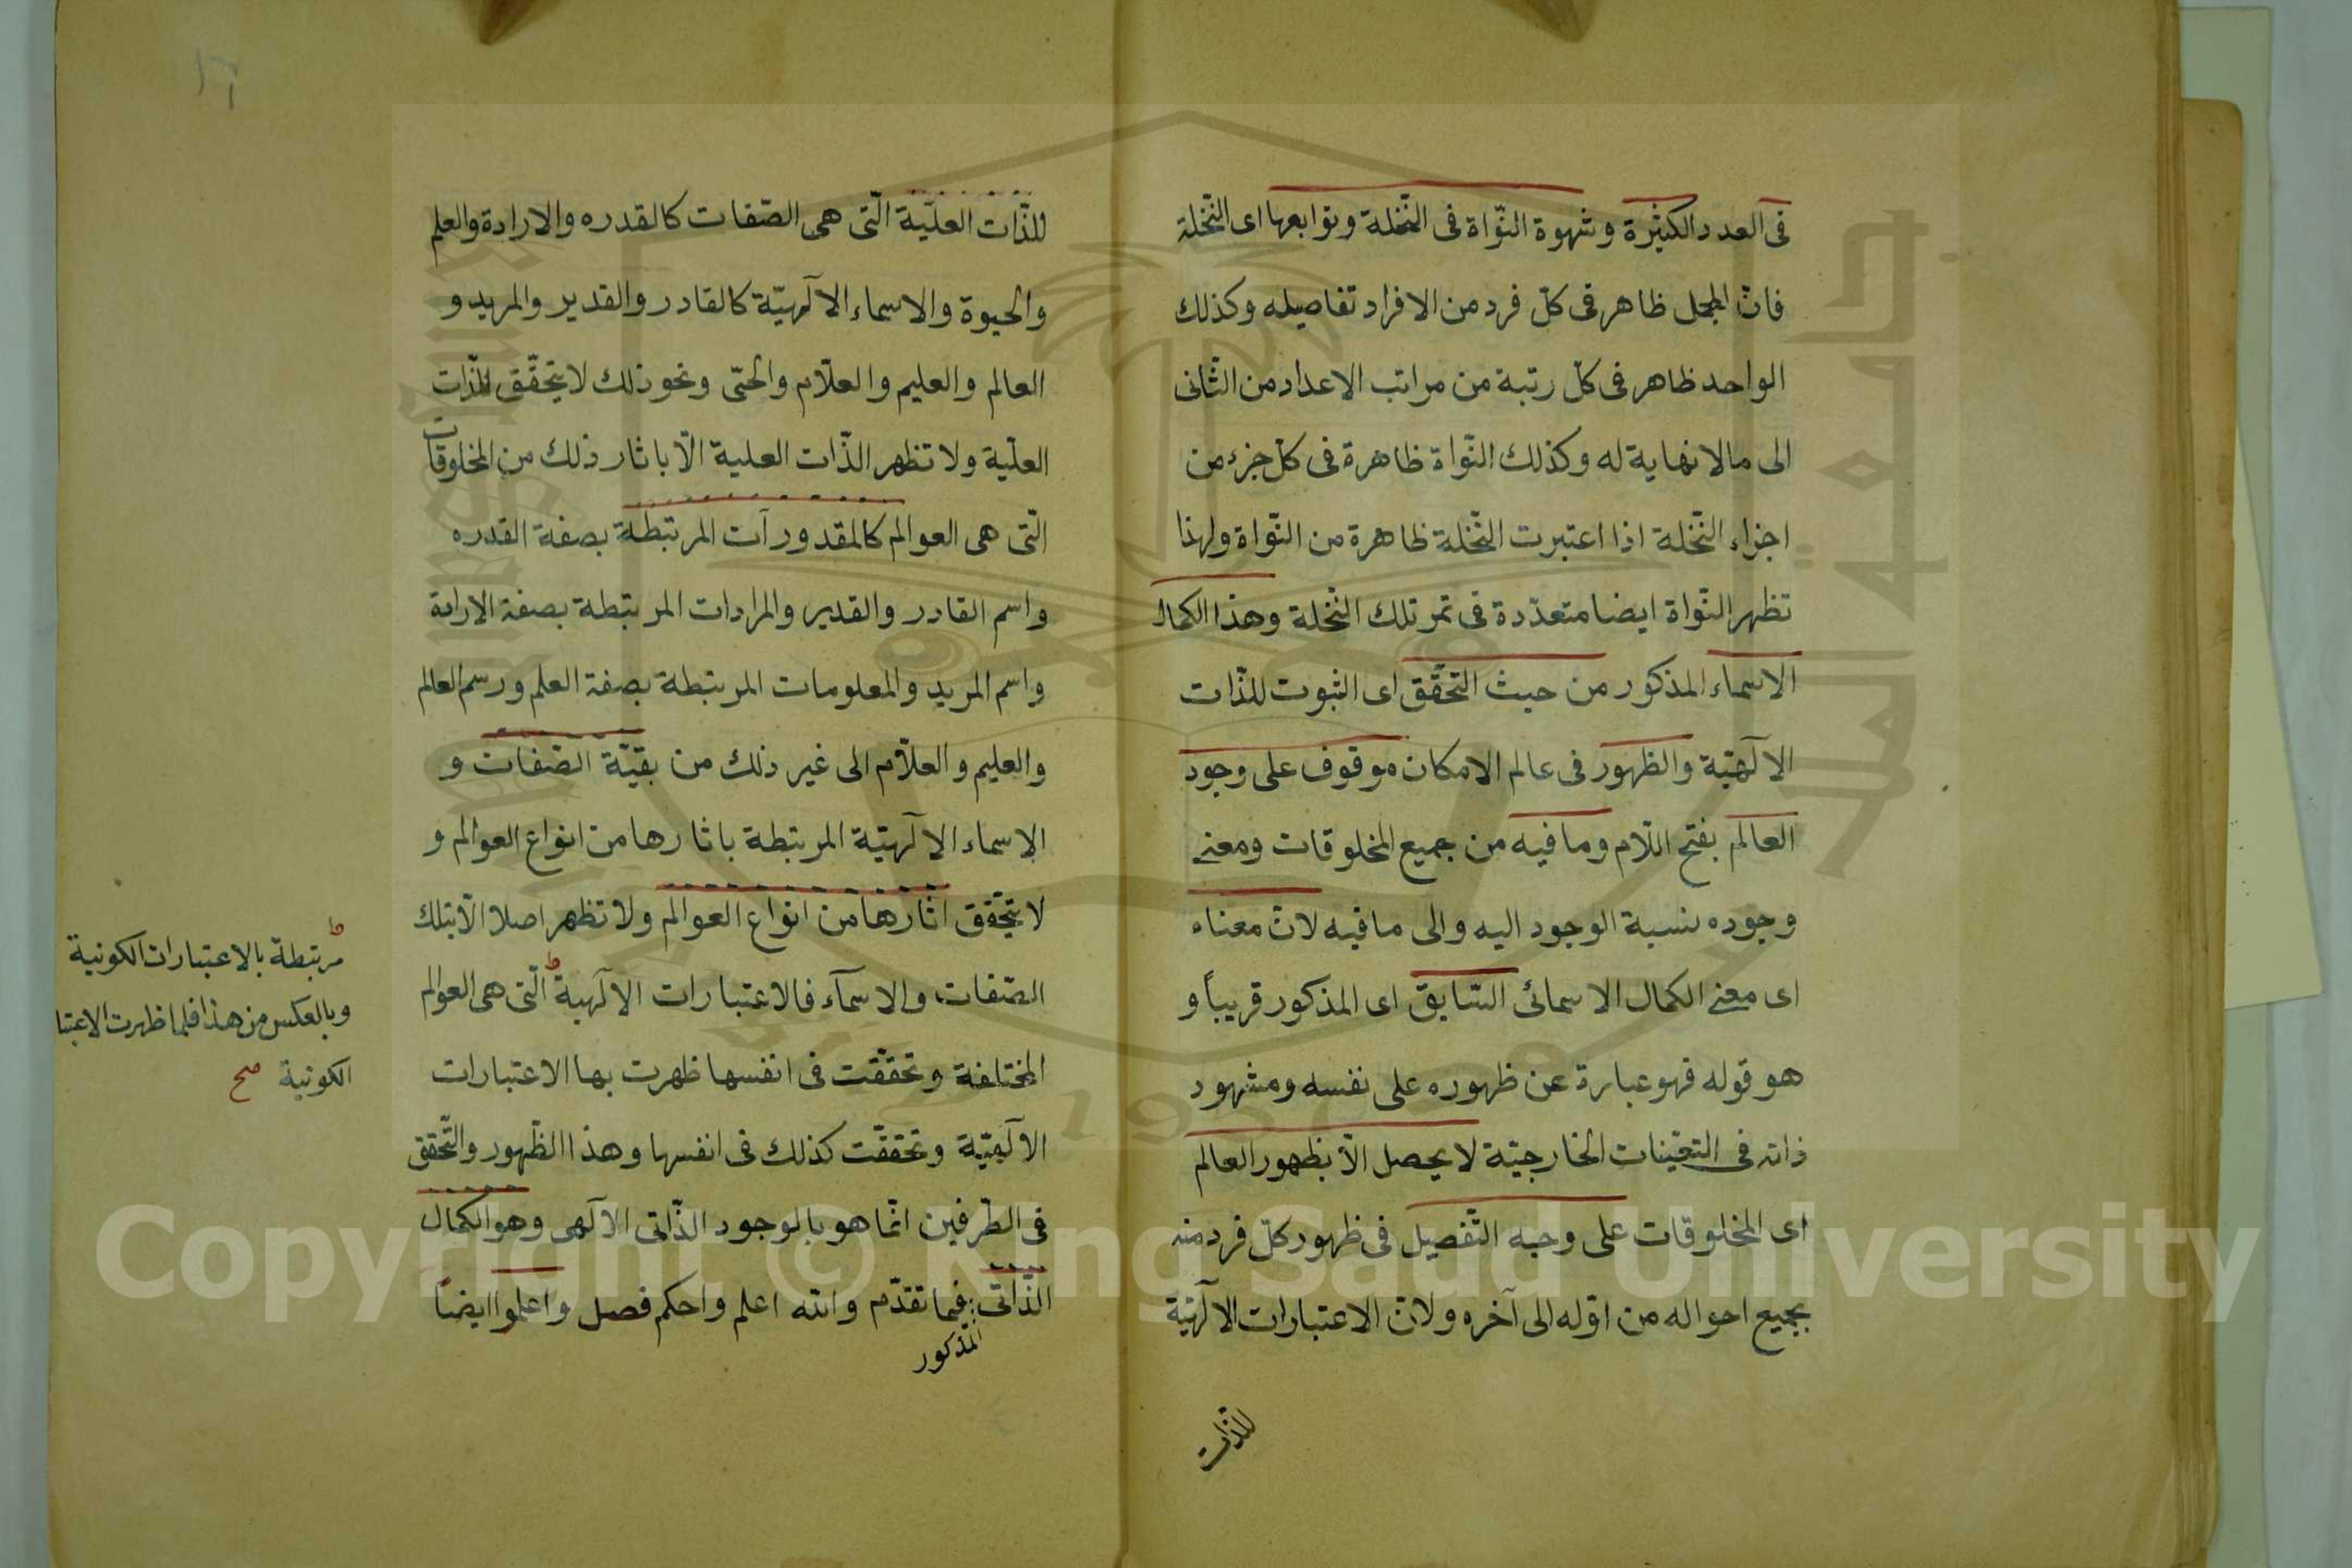 فى العدد الكثيرة وشهوة النّواة فى النّخلة وتوابعها اى النّخلة
فانّ المجمل ظاهر فى كلّ فرد من الافراد تفاصيله وكذلك
الواحد ظاهر فى كلّ رتبة من مراتب الاعداد من الثّانى
الى مالا نهاية له وكذلك النّواة ظاهرة فى كلّ جزء من
اجزاء النّخلة اذا اعتبرت النّخلة ظاهرة من النّواة ولهذا
تظهر النّواة ايضا متعدّدة فى تمر تلك النّخلة وهذا الكمال
الاسماء المذكور من حيث التحقّق اى الثبوت للذّات
الآلهيّة والظهور فى عالم الامكان موقوف على وجود
العالم بفتح اللّام وما فيه من جميع المخلوقات ومعنى
وجوده نسبة الوجود اليه والى ما فيه لانّ معناه
اى معنى الكمال الاسمائى السّابق اى المذكور قريباً و
هو قوله فهو عبارة عن ظهوره على نفسه ومشهود
ذاته فى التعيّنات الخارجيّة لا يحصل الّا بظهور العالم
اى المخلوقات على وجه التّفصيل فى ظهور كلّ فرد منه
بجميع احواله من اوّله الى آخره ولانّ الاعتبارات الآلهيّة
للذات
١٦
للذّات العليّة الّتى هى الصّفات كالقدره والارادة والعلم
والحيوة والاسماء الآلهيّة كالقادر والقدير والمريد و
العالم والعليم والعلّام والحىّ ونحو ذلك لا يتحقّق للذّات
العليّة ولا تظهر الذّات العلية الّا باثار ذلك من المخلوقات
الّتى هى العوالم كالمقدورات المرتبطة بصفة القدره
واسم القادر والقدير والمرادات المرتبطة بصفة الارادة
واسم المريد والمعلومات المرتبطة بصفة العلم ورسم العالم
والعليم والعلّام الى غير ذلك من بقيّة الصّفات و
الاسماء الآلهيّة المرتبطة باثارها من انواع العوالم و
لا يتحقّق اثارها من انواع العوالم ولا تظهر اصلا الّا بتلك
الصّفات والاسمآء فالاعتبارات الآلهية الّتى هى العوالم
المختلفة وتحقّقت فى انفسها ظهرت بها الاعتبارات
الآلهيّة وتحقّقت كذلك فى انفسها وهذا الظّهور والتّحقق
فى الطّرفين انّما هو بالوجود الذّاتى الآلهى وهو الكمال
الذّاتى فيما تقدّم والله اعلم واحكم فصل واعلموا ايضاً
المذكور
مرتبطة بالاعتبارات الكونية
وبالعكس من هذا فلما ظهرت الاعتبا
الكونية صح
Copyright © King Saud University
جامعة الملك سعود
King Saud University
1957